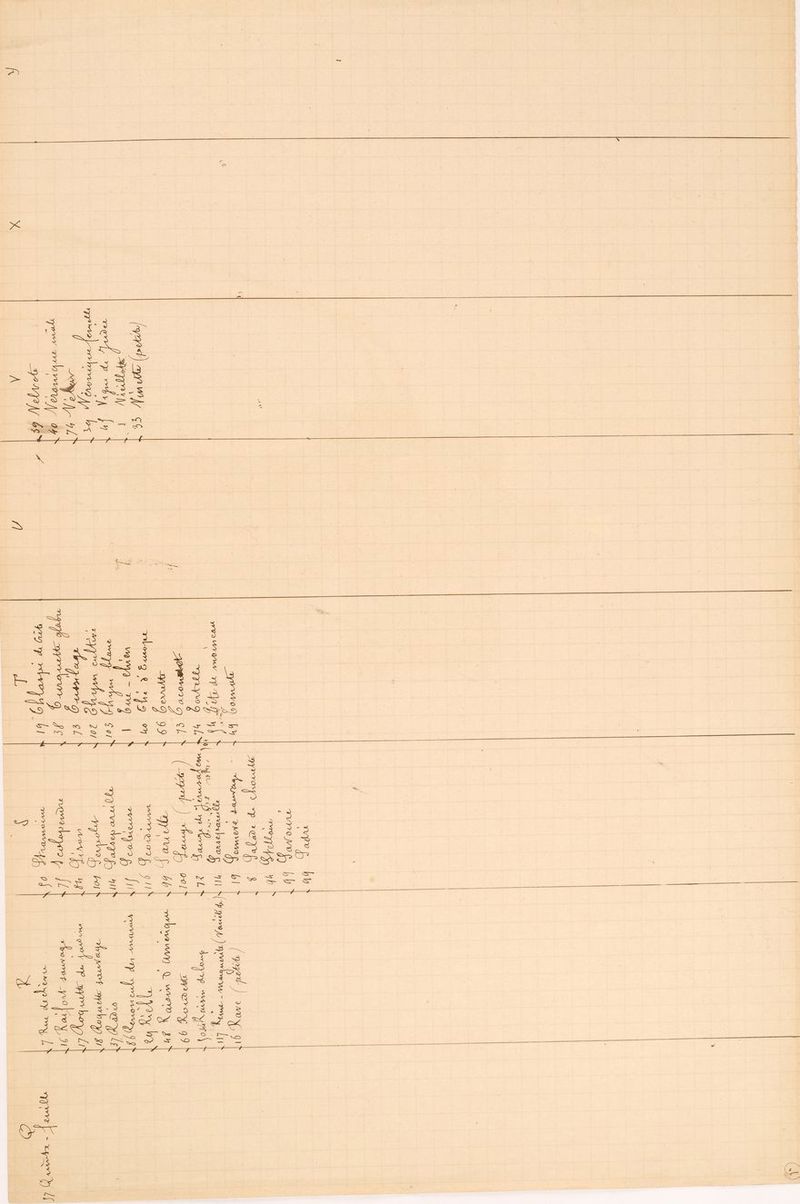 Q
37 Quinte-feuille
R
7 Rue de chèvre
16 Raifort sauvage
17 Roquette des jardins
18 Roquette sauvage
37 Radis
86 Renoncule des marais
29 Rielle
48 Raisin d'Amérique
66 Roudette
Raisin de loup
117 Reine-marguerite (Variété)
16 Rave (petite)
S
50 Stramoine
75 Scolopendre
84 Siron
109 Serpolit
114 Salsepareille
115 Scabieuse
116 Scordium
99 Sariette
100 Sauge (petite)
72 Sauge de Jérusalem
114 Sarsepareille
19 Sennevé sauvage
8 Salade de chouette
94 Stellaire
99 Savouré
99 Sadré
T
19 Thlaspi de
38 Turquette glabre
73 Tussilage
102 Thym cultivé
103 Thym blanc
1 Tue-chien
40 Thé d'Europe
66 Terrette
73
74 Tortelle
94 Tête de moineau
49 Tomate
U
V
39 Velvote
40 Véronique mâle
74 Vélar
39 Véronique femelle
45 Vigne de Judée
1 Vieillotte
33 Vinette (petite)
X
Y